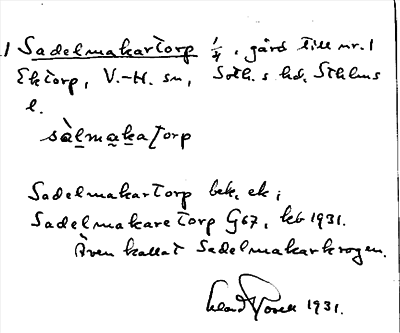 1 Sadelmakartorp 1/4, gård till nr. 1
Ektorp, V.-H. sn, Soth.s hd, Sthlms
l.
sàlmakatorp
Sadelmakartorp bek. ek;
Sadelmakaretorp G67, kb 1931.
Även kallat Sadelmakarkrogen.
1931.